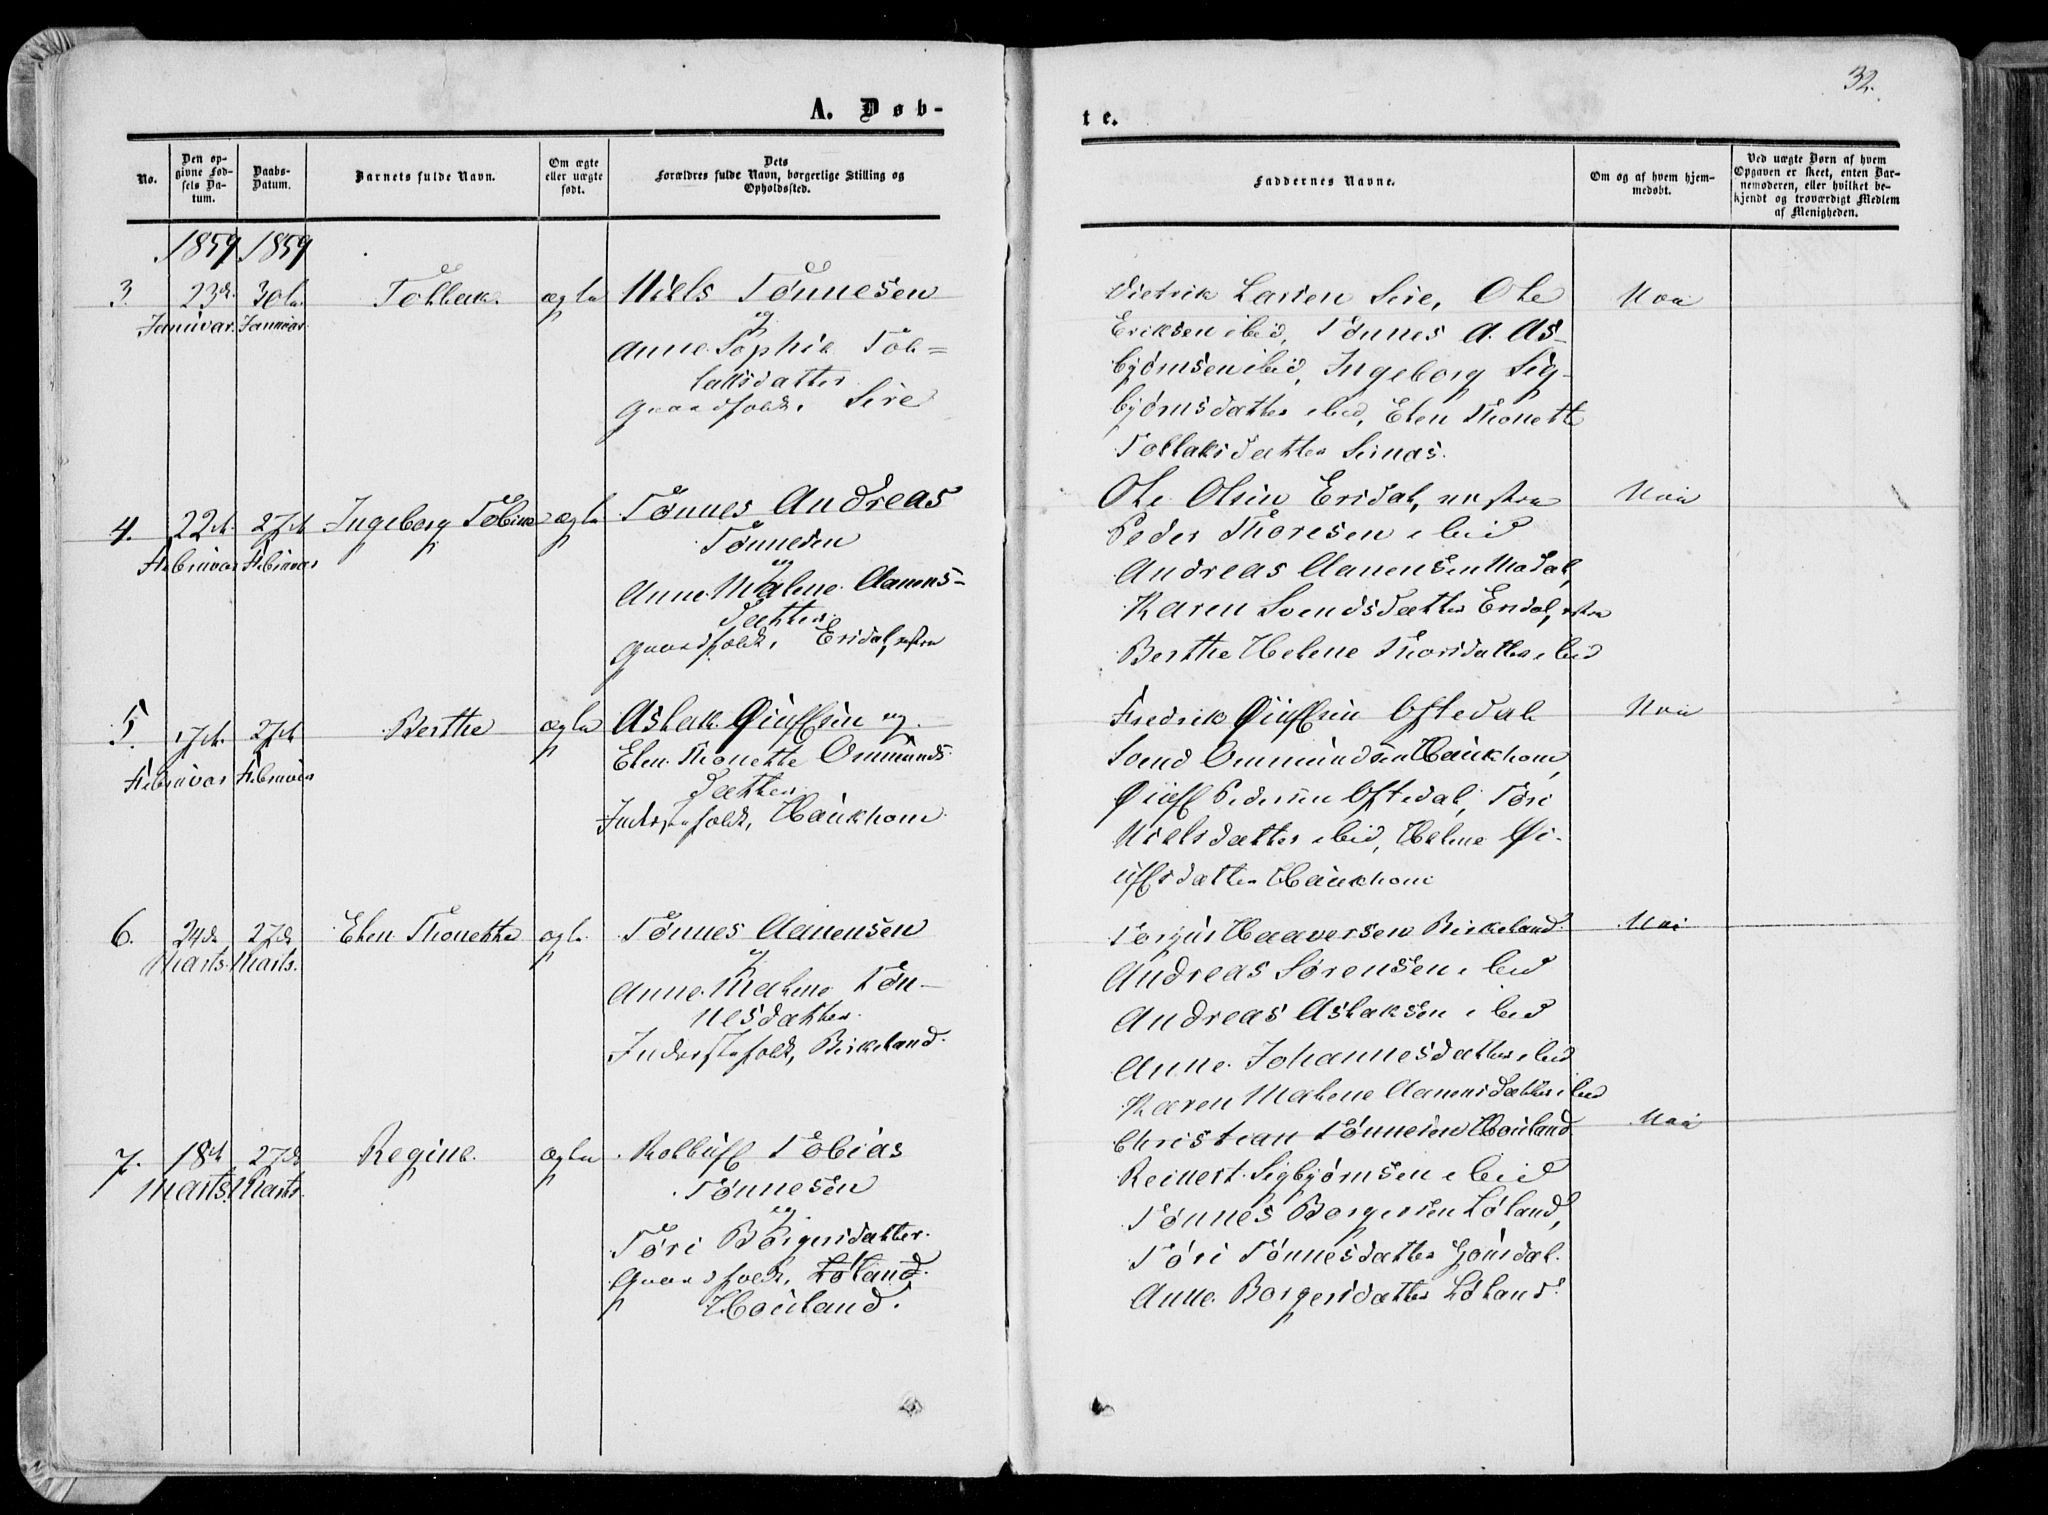 32.
A. Døb-
te.
No.
Den op-
givne Fød-
sels Da-
tum.
Daabs-
Datum.
Barnets fulde Navn.
Om ægte
eller uægte
født.
Dets
Forældres fulde Navn, borgerlige Stilling og
Opholdssted.
Faddernes Navne.
Om og af hvem hjem-
medøbt.
Ved uægte Børn af hvem
Opgaven er skeet, enten Bar-
nemoderen, eller hvilket be-
kjendt og troværdigt Medlem
af Menigheden.
1859 1859
3
23de
Januar
30te
Januar
Tollak
ægte
Niels Tønnesen
og
Anne Sophie Tol=
laksdatter
Gaardfolk, Sire
Dietrik Larsen Sire, Ole
Eriksen ibid, Tønnes A. As-
bjørnsen ibid, Ingeborg Sig-
bjørnsdatter ibid, Elen Thonette
Tollaksdatter Sirnæs.
Nei
4.
22de
Februar
27de
Februar
Ingeborg Tobine
ægte
Tønnes Andreas
Tønnesen
og
Anne Malene Aanens-
datter
Gaardfolk, Ersdal, østre
Ole Olsen Ersdal, østre
Peder Thoresen ibid
Andreas Aanensen Modal,
Karen Svendsdatter Ersdal, østre
Berthe Helene Thorsdatter ibid
Nei
5.
7de
Februar
27de
Februar
Berthe
ægte
Aslak Øiulfsen og
Elen Thonette Ommunds
datter
Inderstfolk, Haukhom
Fredrik Øiulfsen Oftedal
Svend Ommundsen Haukhom,
Øiulf Pedersen Oftedal, Tøri
Nielsdatter ibid, Helene Øi-
ulfsdatter Haukhom
Nei
6.
24de
Marts
27de
Marts.
Elen Thonette
ægte
Tønnes Aanensen
og
Anne Malene Tøn-
nesdatter
Inderstfolk, Birkeland.
Torjus Haaversen Birkeland.
Andreas Sørensen ibid
Andreas Aslaksen ibid
Anne Johannesdatter ibid
Karen Malene Aanensdatter ibid
Nei
7.
18de
Marts.
27de
Marts
Regine
ægte
Rolluf Tobias
Tønnesen
og
Tøri Børgersdatter.
Gaardfolk, Løland.
Houland.
Christian Tønnesen Houland
Reinert Sigbjørnsen ibid
Tønnes Borgersen Løland,
Tøri Tønnesdatter
Anne Borgersdatter Løland.
Nei